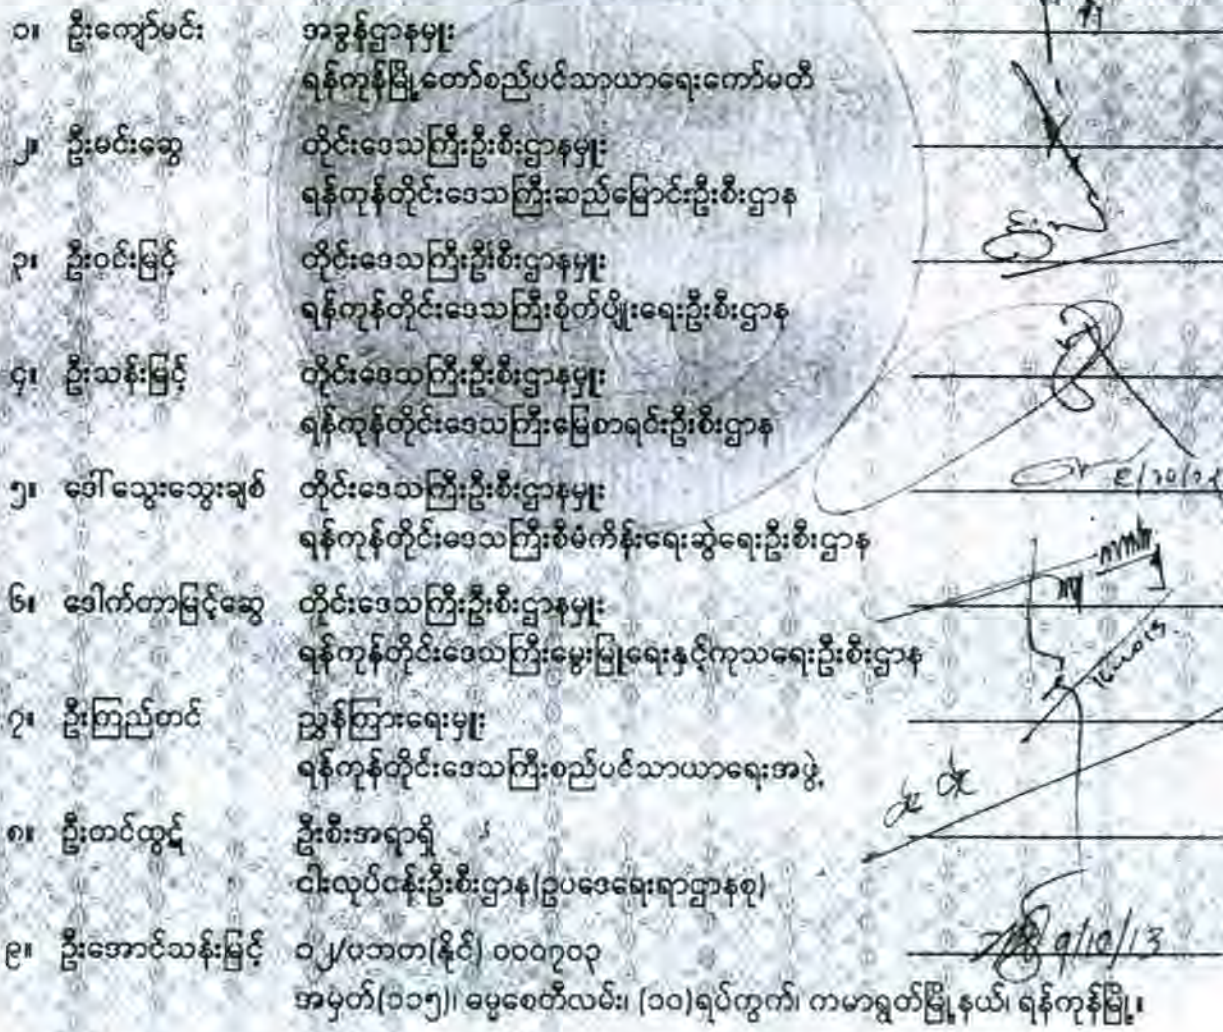 ၁။ ဦးကျော်မင်း အခွန်ဌာနမှူး
ရန်ကုန်မြို့တော်စည်ပင်သာယာရေးကော်မတီ
၂။ ဦးမင်းဆွေ တိုင်းဒေသကြီးဦးစီးဌာနမှူး
ရန်ကုန်တိုင်းဒေသကြီးဆည်မြောင်းဦးစီးဌာန
၃။ ဦးဝင်းမြင့် တိုင်းဒေသကြီးဦးစီးဌာနမှူး
ရန်ကုန်တိုင်းဒေသကြီးစိုက်ပျိုးရေးဦးစီးဌာန
၄။ ဦးသန်းမြင့် တိုင်းဒေသကြီးဦးစီးဌာနမှူး
ရန်ကုန်တိုင်းဒေသကြီးမြေစာရင်းဦးစီးဌာန
၅။ ဒေါ်သွေးသွေးချစ် တိုင်းဒေသကြီးဦးစီးဌာနမှူး
ရန်ကုန်တိုင်းဒေသကြီးစီမံကိန်းရေးဆွဲရေးဦးစီးဌာန
၆။ ဒေါက်တာမြင့်ဆွေ တိုင်းဒေသကြီးဦးစီးဌာနမှူး
ရန်ကုန်တိုင်းဒေသကြီးမွေးမြူရေးနှင့်ကုသရေးဦးစီးဌာန
၇။ ဦးကြည်တင် ညွှန်ကြားရေးမှူး
ရန်ကုန်တိုင်းဒေသကြီးစည်ပင်သာယာရေးအဖွဲ့
၈။ ဦးတင်ထွဋ် ဦးစီးအရာရှိ
ငါးလုပ်ငန်းဦးစီးဌာန(ဥပဒေရေးရာဌာနစု)
၉။ ဦးအောင်သန်းမြင့် ၁၂/ပဘတ(နိုင်) ၀၀၀၇၀၃ 9/10/13
အမှတ်(၁၁၅)၊ ဓမ္မစေတီလမ်း၊ (၁၀)ရပ်ကွက်၊ ကမာရွတ်မြို့နယ်၊ ရန်ကုန်မြို့။